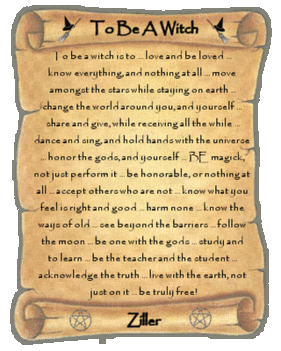 To Be A Witch
To be a witch is to ... love and be loved ...
know everything, and nothing at all ... move
amongst the stars while staying on earth ...
change the world around you, and yourself ...
share and give, while receiving all the while ...
dance and sing, and hold hands with the universe
... honor the gods, and yourself ... BE magick,
not just perform it ... be honorable, or nothing at
all ... accept others who are not ... know what you
feel is right and good ... harm none ... know the
ways of old ... see beyond the barriers ... follow
the moon ... be one with the gods ... study and
to learn ... be the teacher and the student ...
acknowledge the truth ... live with the earth, not
just on it ... be truly free!
Ziller